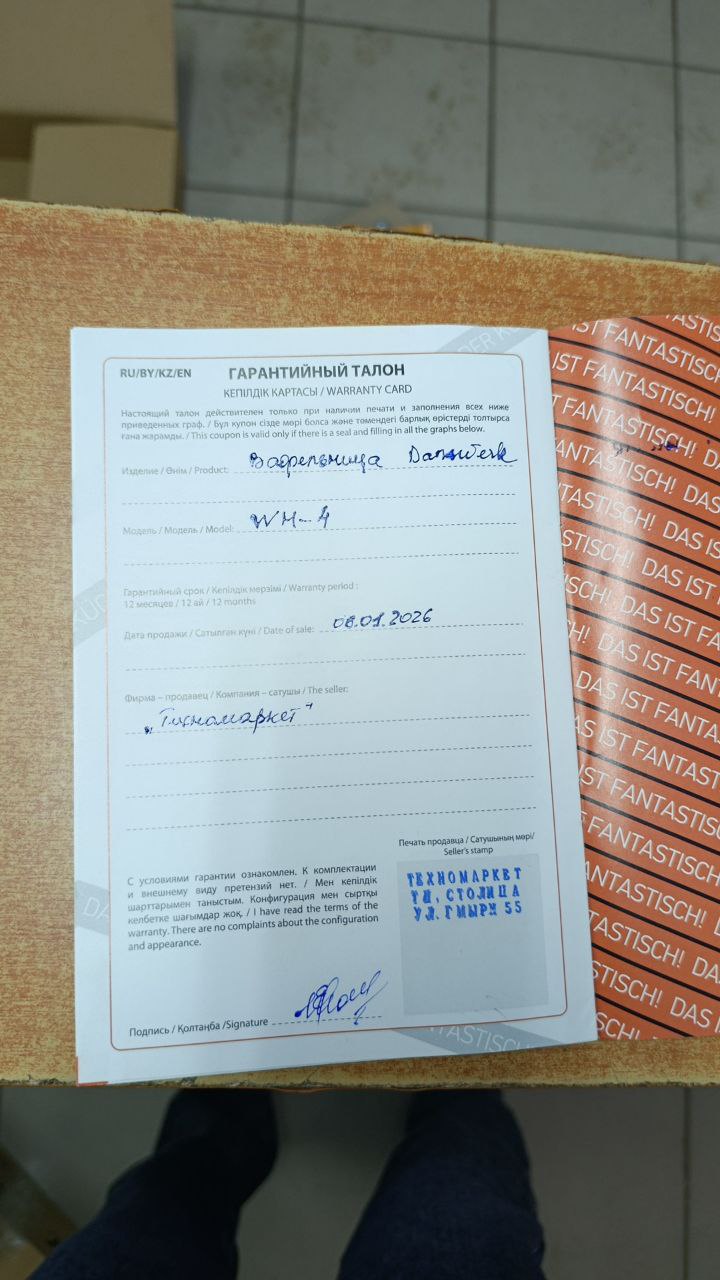 RU/BY/KZ/EN ГАРАНТИЙНЫЙ ТАЛОН
КЕПІЛДІК КАРТАСЫ / WARRANTY CARD
Настоящий талон действителен только при наличии печати и заполнения всех ниже
приведенных граф. / Бұл купон сізде мөрі болса және төмендегі барлық өрістерді толтырса
ғана жарамды. / This coupon is valid only if there is a seal and filling in all the graphs below.
Изделие / Өнім / Product: Вафельница
Модель / Модель / Model: WH-4
Гарантийный срок / Кепілдік мерзімі / Warranty period :
12 месяцев / 12 ай / 12 months
Дата продажи / Сатылған күні / Date of sale: 08.01.2026
Фирма – продавец / Компания – сатушы / The seller:
„Техномаркет"
Печать продавца / Сатушының мөрі/
Seller's stamp
ТЕХНОМАРКЕТ
УЛ. ГМЫРИ 55
С условиями гарантии ознакомлен. К комплектации
и внешнему виду претензий нет. / Мен кепілдік
шарттарымен таныстым. Конфигурация мен сыртқы
келбетке шағымдар жоқ. / I have read the terms of the
warranty. There are no complaints about the configuration
and appearance.
Подпись / Қолтаңба /Signature
IST FANTASTISCH!
IST FANTASTISCH!
FANTASTISCH! DAS
FANTASTISCH! DAS
FANTASTISCH! DAS IS
DAS IST
DAS IST FA
DAS IST FAN
DAS IST FANT
DAS IST FANTA
IST FANTAST
IST FANTASTIS
FANTASTISCH
FANTASTISCH!
DAS
DAS IS